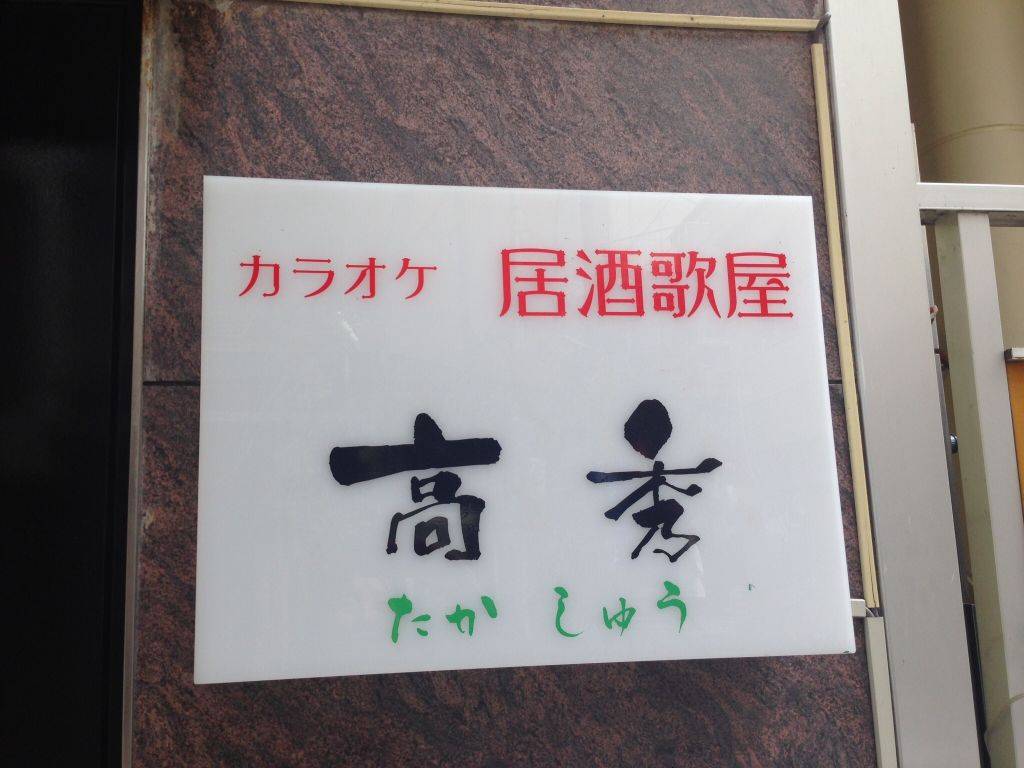 カラオケ 居酒歌屋
高秀
たかしゅう